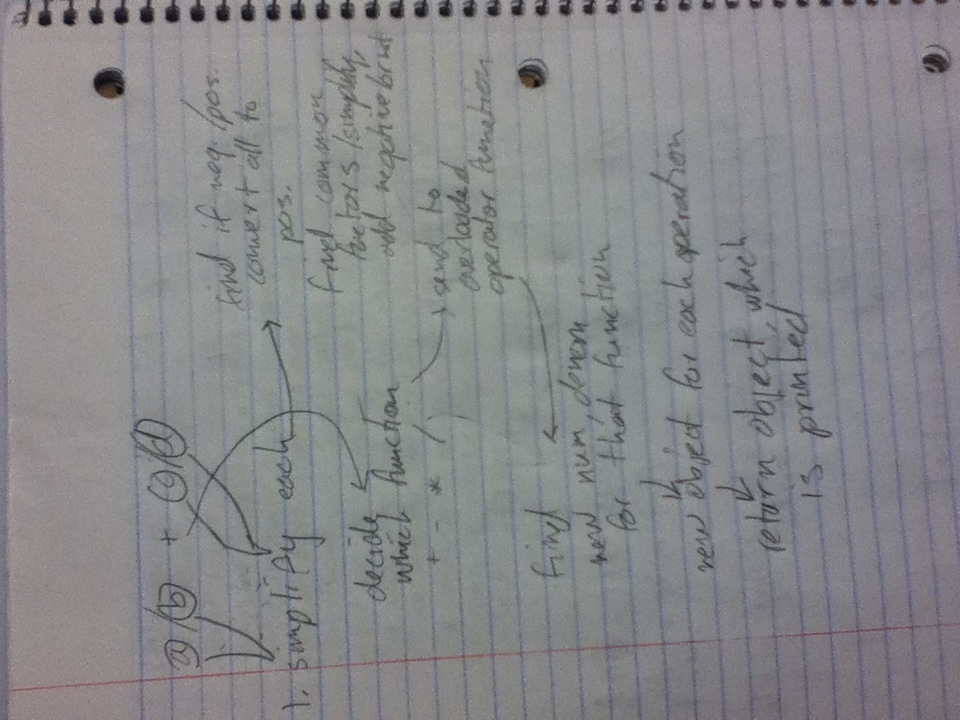 a/b + c/d
1. simplify each
find if neg./pos.
convert all to
pos.
find common
factors/simplify,
add negative
decide
which function
+ - * /
send to
overloaded
operator function
find
new num, denom
for that function
new object for each operation
return object, which
is printed